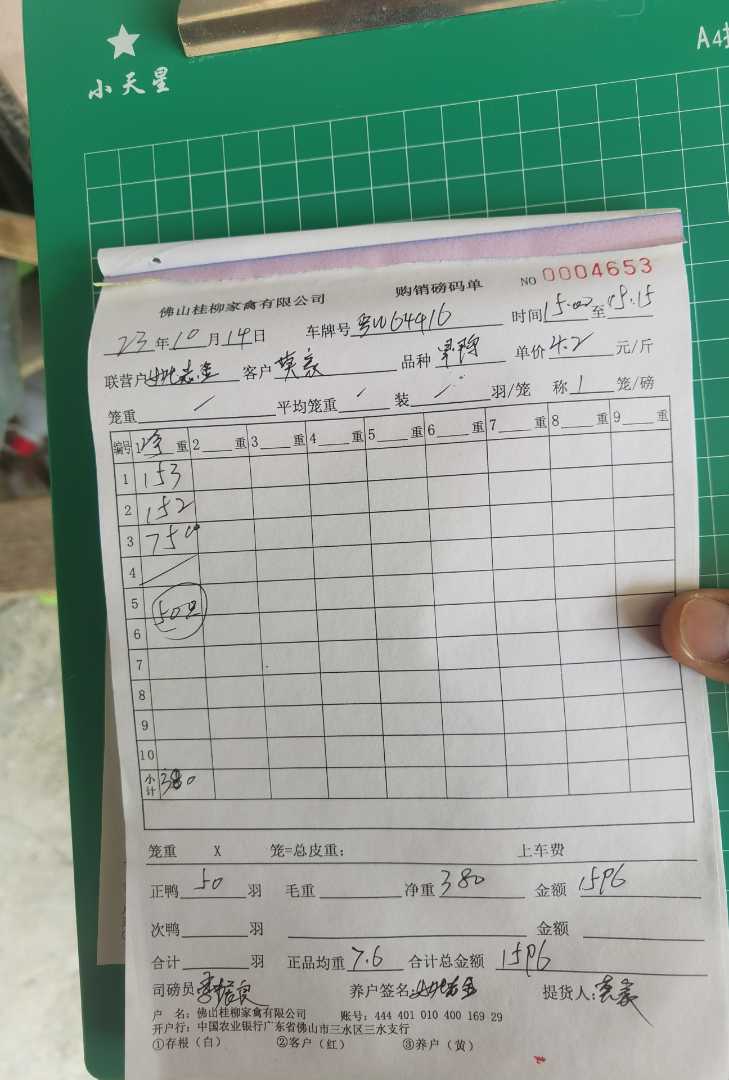 A4
小天星
购销磅码单
NO 0004653
佛山桂柳家禽有限公司
23年10月14日 车牌号粤W64416 时间15:00至15:15
联营户 客户 品种 单价4.2元/斤
笼重/ 平均笼重/ 装/羽/笼 称1笼/磅
编号 1净重 2重 3重 4重 5重 6重 7重 8重 9重
1 153
2 152
3 75
4 /
5 50只
6
7
8
9
10
小计 380
笼重 X 笼=总皮重: 上车费
正鸭50羽 毛重 净重380 金额1596
次鸭 羽 金额
合计 羽 正品均重7.6 合计总金额1596
司磅员 养户签名: 提货人:
户 名: 佛山桂柳家禽有限公司 账号: 444 401 010 400 169 29
开户行: 中国农业银行广东省佛山市三水区三水支行
①存根(白) ②客户(红) ③养户(黄)